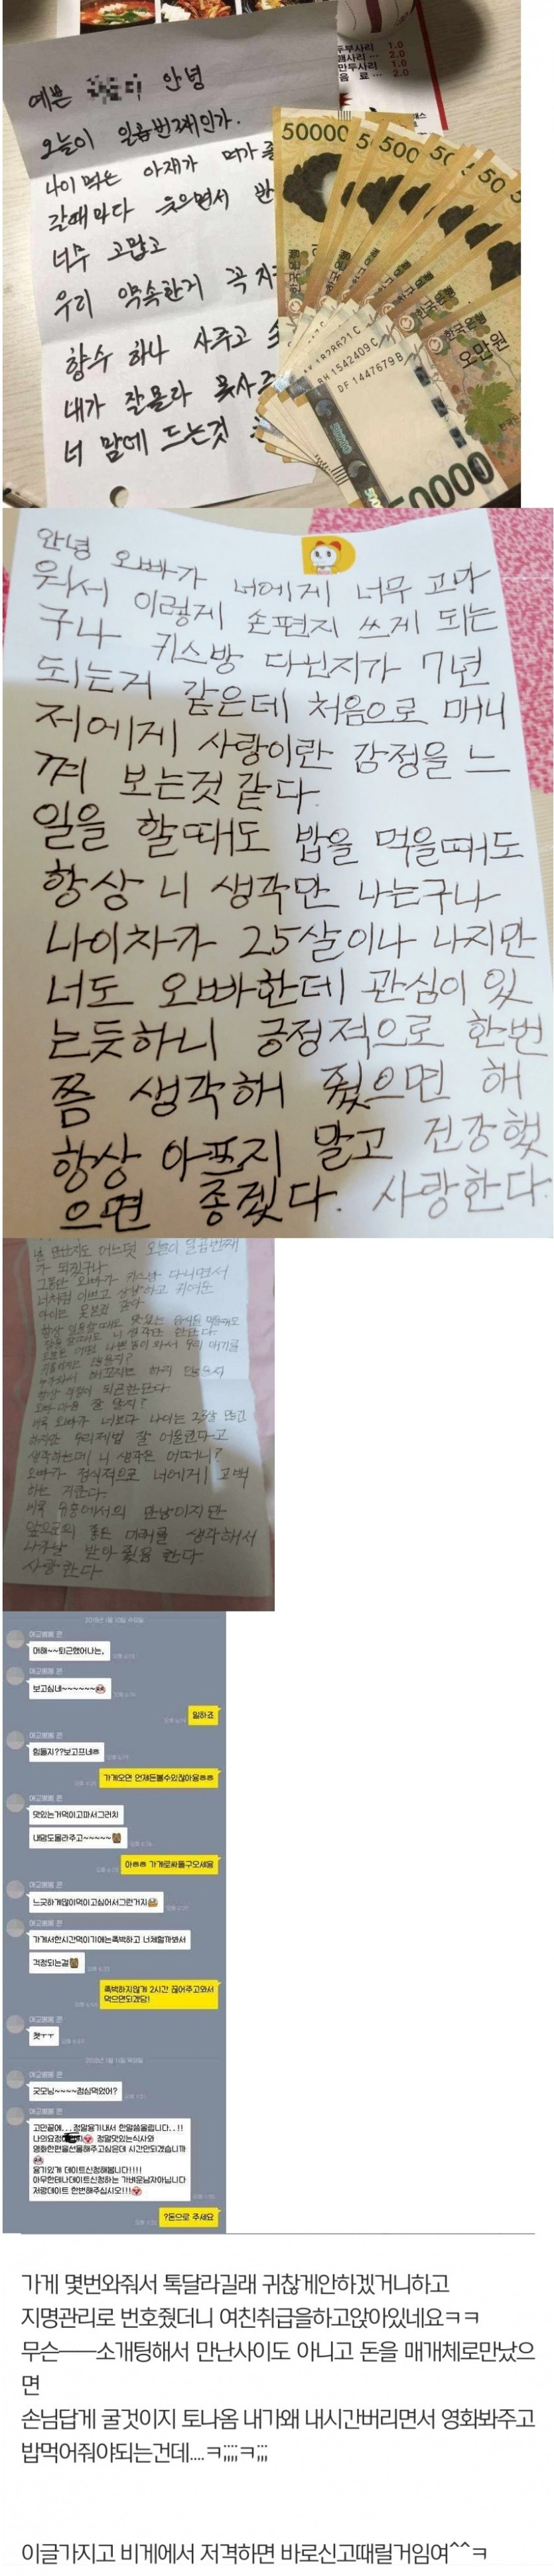 두부사리 1.0
만두사리 1.0
음 료 ... 2.0
예쁜 안녕
오늘이 일곱번째인가.
나이 먹은 아재가 뭐가 좋
갈때마다 웃으면서 반
너무 고맙고
우리 약속한거 꼭 지
향수 하나 사주고
내가 잘몰라 못사주
너 맘에 드는것
50000
한국은행
오만원
BH 1542409 C
DF 1447679 B
안녕 오빠가 너에게 너무 고마
워서 이렇게 손편지 쓰게 되는
구나 키스방 다닌지가 7년
되는거 같은데 처음으로 매니
저에게 사랑이란 감정을 느
껴 보는것 같다
일을 할때도 밥을 먹을때도
항상 니 생각만 나는구나
나이차가 25살이나 나지만
너도 오빠한데 관심이 있
는듯하니 긍정적으로 한번
쯤 생각해 줬으면 해
항상 아프지 말고 건강했
으면 좋겠다. 사랑한다
만난지도 어느덧 오늘이 일곱번째
가 되었구나
그동안 오빠가 키스방 다니면서
너처럼 이쁘고 상냥하고 귀여운
아이는 못본거 같다
항상 일을할때도 맛있는 음식을 먹을때도
잠을 잘때도 니 생각만 한단다
항상 걱정이 되곤한단다
오빠 마음 잘 알지?
비록 오빠가 너보다 나이는 23살 많고
하지만 우리제법 잘 어울린다고
생각하는데 니 생각은 어떠니?
오빠가 정식적으로 너에게 고백
하는 거란다.
비록 업소에서의 만남이지만
앞으로의 좋은 미래를 생각해서
사랑한다
2018년 1월 10일 수요일
머해~~퇴근했어나는,
보고싶네~~~~~~
일하죠
힘들지??보고프네ㅎ
가게오면 언제든볼수있잖아용ㅎㅎ
맛있는거먹이고파서그러치
내맘도몰라주고~~~~~
아ㅎㅎ 가게로싸들구오세용
느긋하게많이먹이고싶어서그런거지
가게서한시간먹이기에는촉박하고 너체할까봐서
걱정되는걸
촉박하지않게 2시간 끊어주고와서
먹으면되겠당!
쳇ㅜㅜ
2018년 1월 11일 목요일
굿모닝~~~~점심먹었어?
고민끝에...정말용기내서 한말씀올립니다..!!
나의요정 정말맛있는식사와
영화한편을선물해주고싶은데 시간안되겠습니까
용기있게 데이트신청해봅니다!!!!
아무한테나데이트신청하는 가벼운남자아닙니다
저랑데이트 한번해주십시오!!!
?돈으로 주세요
가게 몇번와줘서 톡달라길래 귀찮게안하겠거니하고
지명관리로 번호줬더니 여친취급을하고앉아있네요ㅋㅋ
무슨——소개팅해서 만난사이도 아니고 돈을 매개체로만났으
면
손님답게 굴것이지 토나옴 내가왜 내시간버리면서 영화봐주고
밥먹어줘야되는건데....ㅋ;;;;ㅋ;;;
이글가지고 비게에서 저격하면 바로신고때릴거임여^^ㅋ